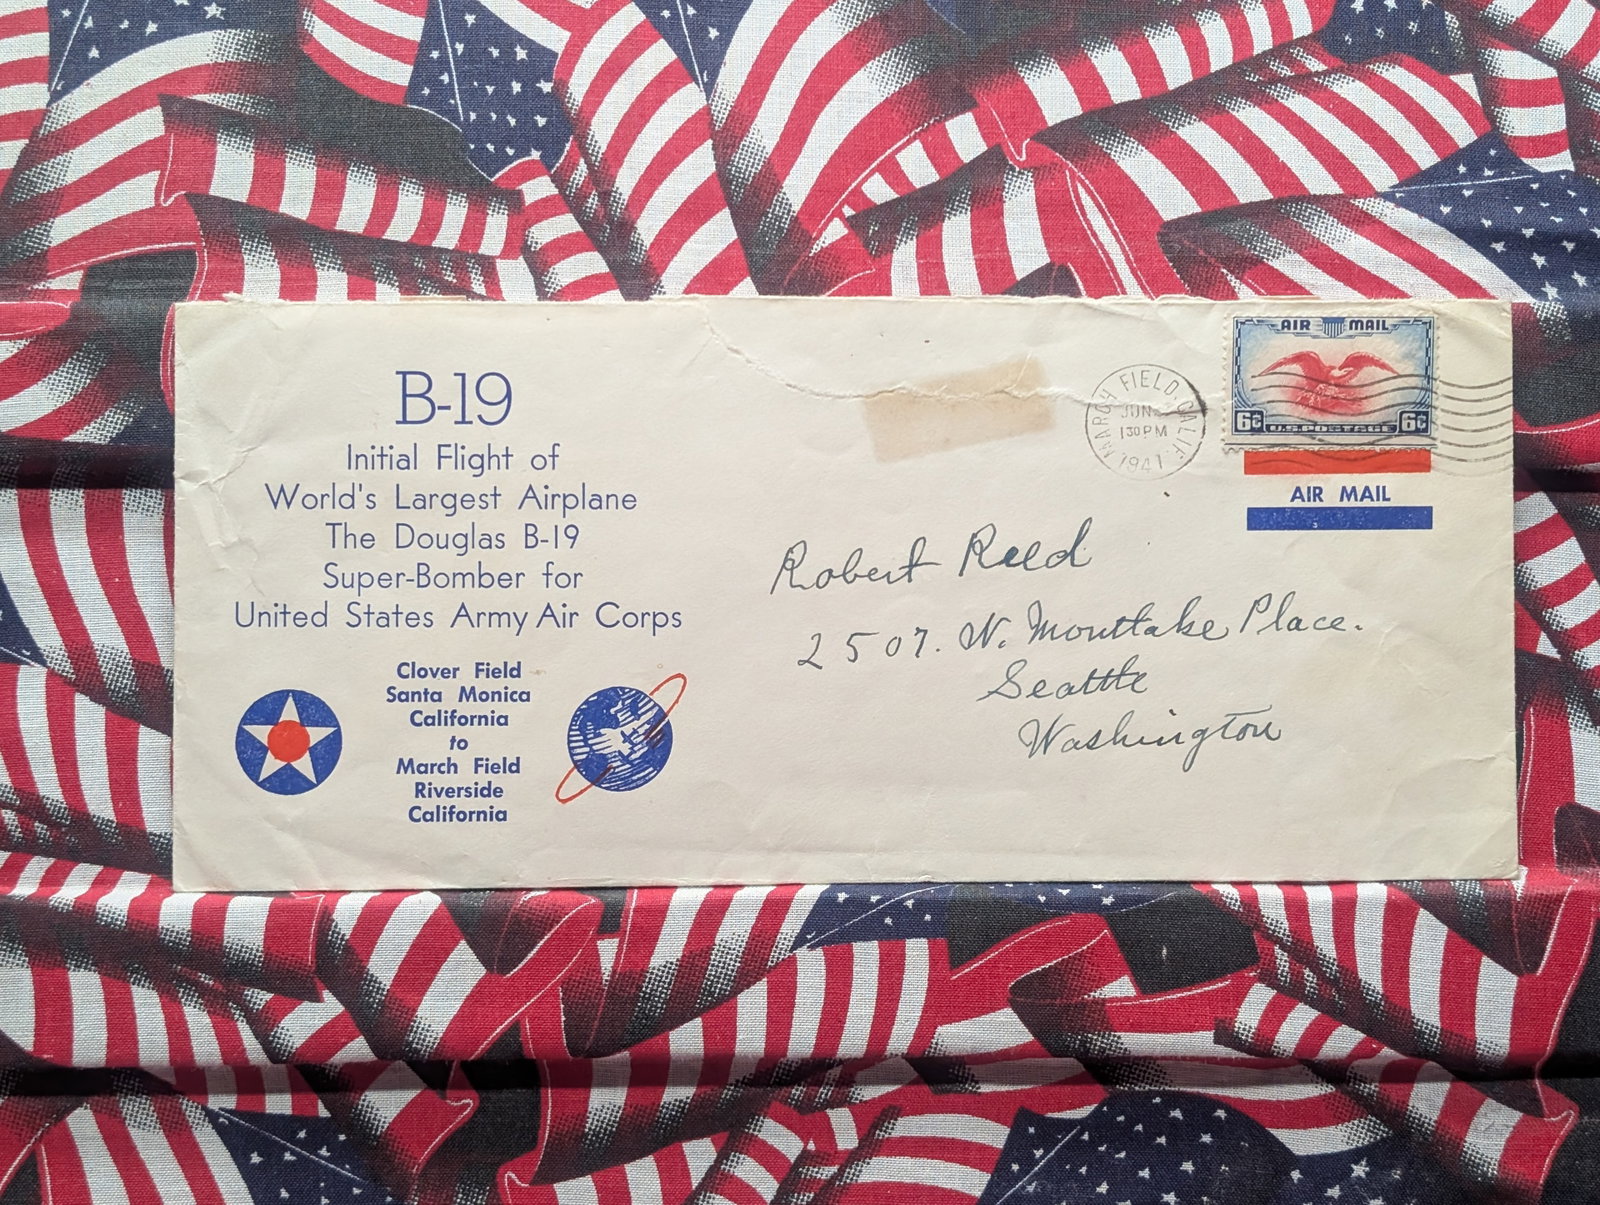 B-19
Initial Flight of
World's Largest Airplane
The Douglas B-19
Super-Bomber for
United States Army Air Corps
Clover Field
Santa Monica
California
to
March Field
Riverside
California
MARCH FIELD, CALIF.
JUN
1 30 PM
1941
AIR MAIL
6¢ U.S. POSTAGE 6¢
AIR MAIL
Robert Reed
2507. W. Montlake Place.
Seattle
Washington